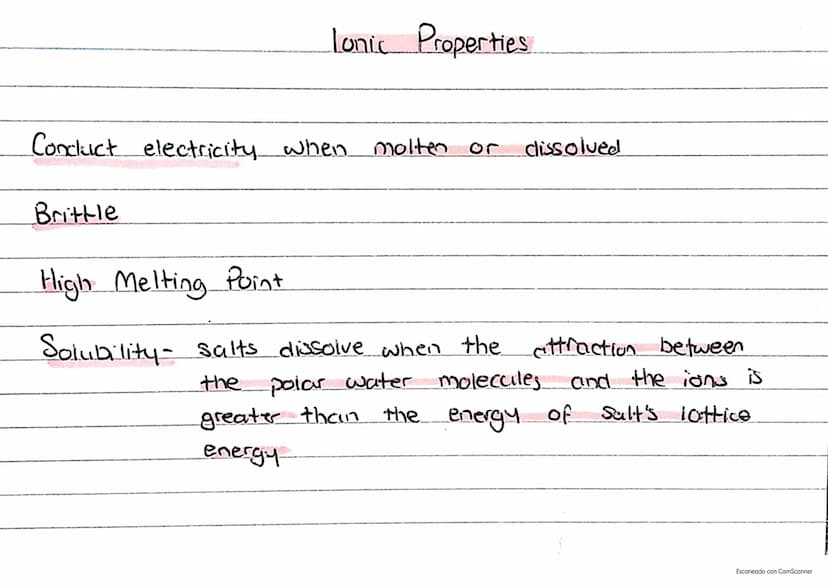 Ionic Properties
Conduct electricity when molten or dissolved
Brittle
High Melting Point
Solubility- salts dissolve when the attraction between
the polar water molecules and the ions is
greater than the energy of salt's lattice
energy
Escaneado con CamScanner